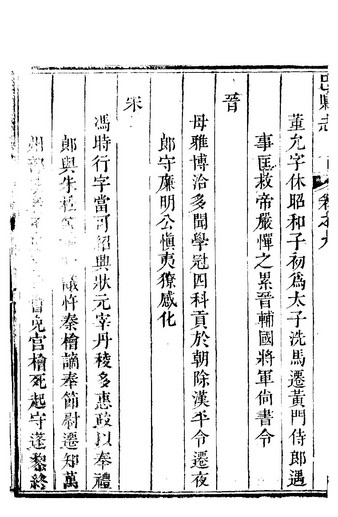 縣志
卷之九
董允字休昭和子初爲太子洗馬遷黃門侍郎遇
事匡救帝嚴憚之累晉輔國將軍尙書令
晉
毋雅博洽多聞學冠四科貢於朝除漢平令遷夜
郎守廉明公愼夷獠感化
宋
馮時行字當可紹興狀元宰丹稜多惠政以奉禮
郎與朱松等議忤秦檜謫奉節尉遷知萬
州免官檜死起守蓬黎終